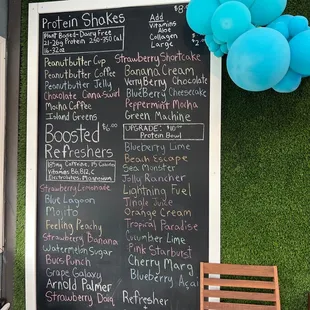 Protein Shakes
Plant Based-Dairy Free
21-26g Protein 250-350 Cal
16-32oz
Add
Vitamins
Aloe
Collagen
Large
Peanutbutter Cup
Peanutbutter Coffee
Peanutbutter Jelly
Chocolate Cinna-Swirl
Mocha Coffee
Island Greens
Strawberry Shortcake
Banana Cream
VeryBerry Chocolate
BlueBerry Cheesecake
Peppermint Mocha
Green Machine
Boosted
Refreshers
Vitamins B6, B12, C
Electrolytes, Magnesium
UPGRADE:
Protein Bowl
Strawberry Lemonade
Blue Lagoon
Mojito
Feeling Peachy
Strawberry Banana
Watermelon Sugar
Bucs Punch
Grape Galaxy
Arnold Palmer
Strawberry Daiq
Blueberry Lime
Beach Escape
Sea Monster
Jolly Rancher
Lightning Fuel
Jingle Juice
Orange Cream
Tropical Paradise
Cucumber Lime
Pink Starburst
Cherry Marg
Blueberry Acai
Refresher